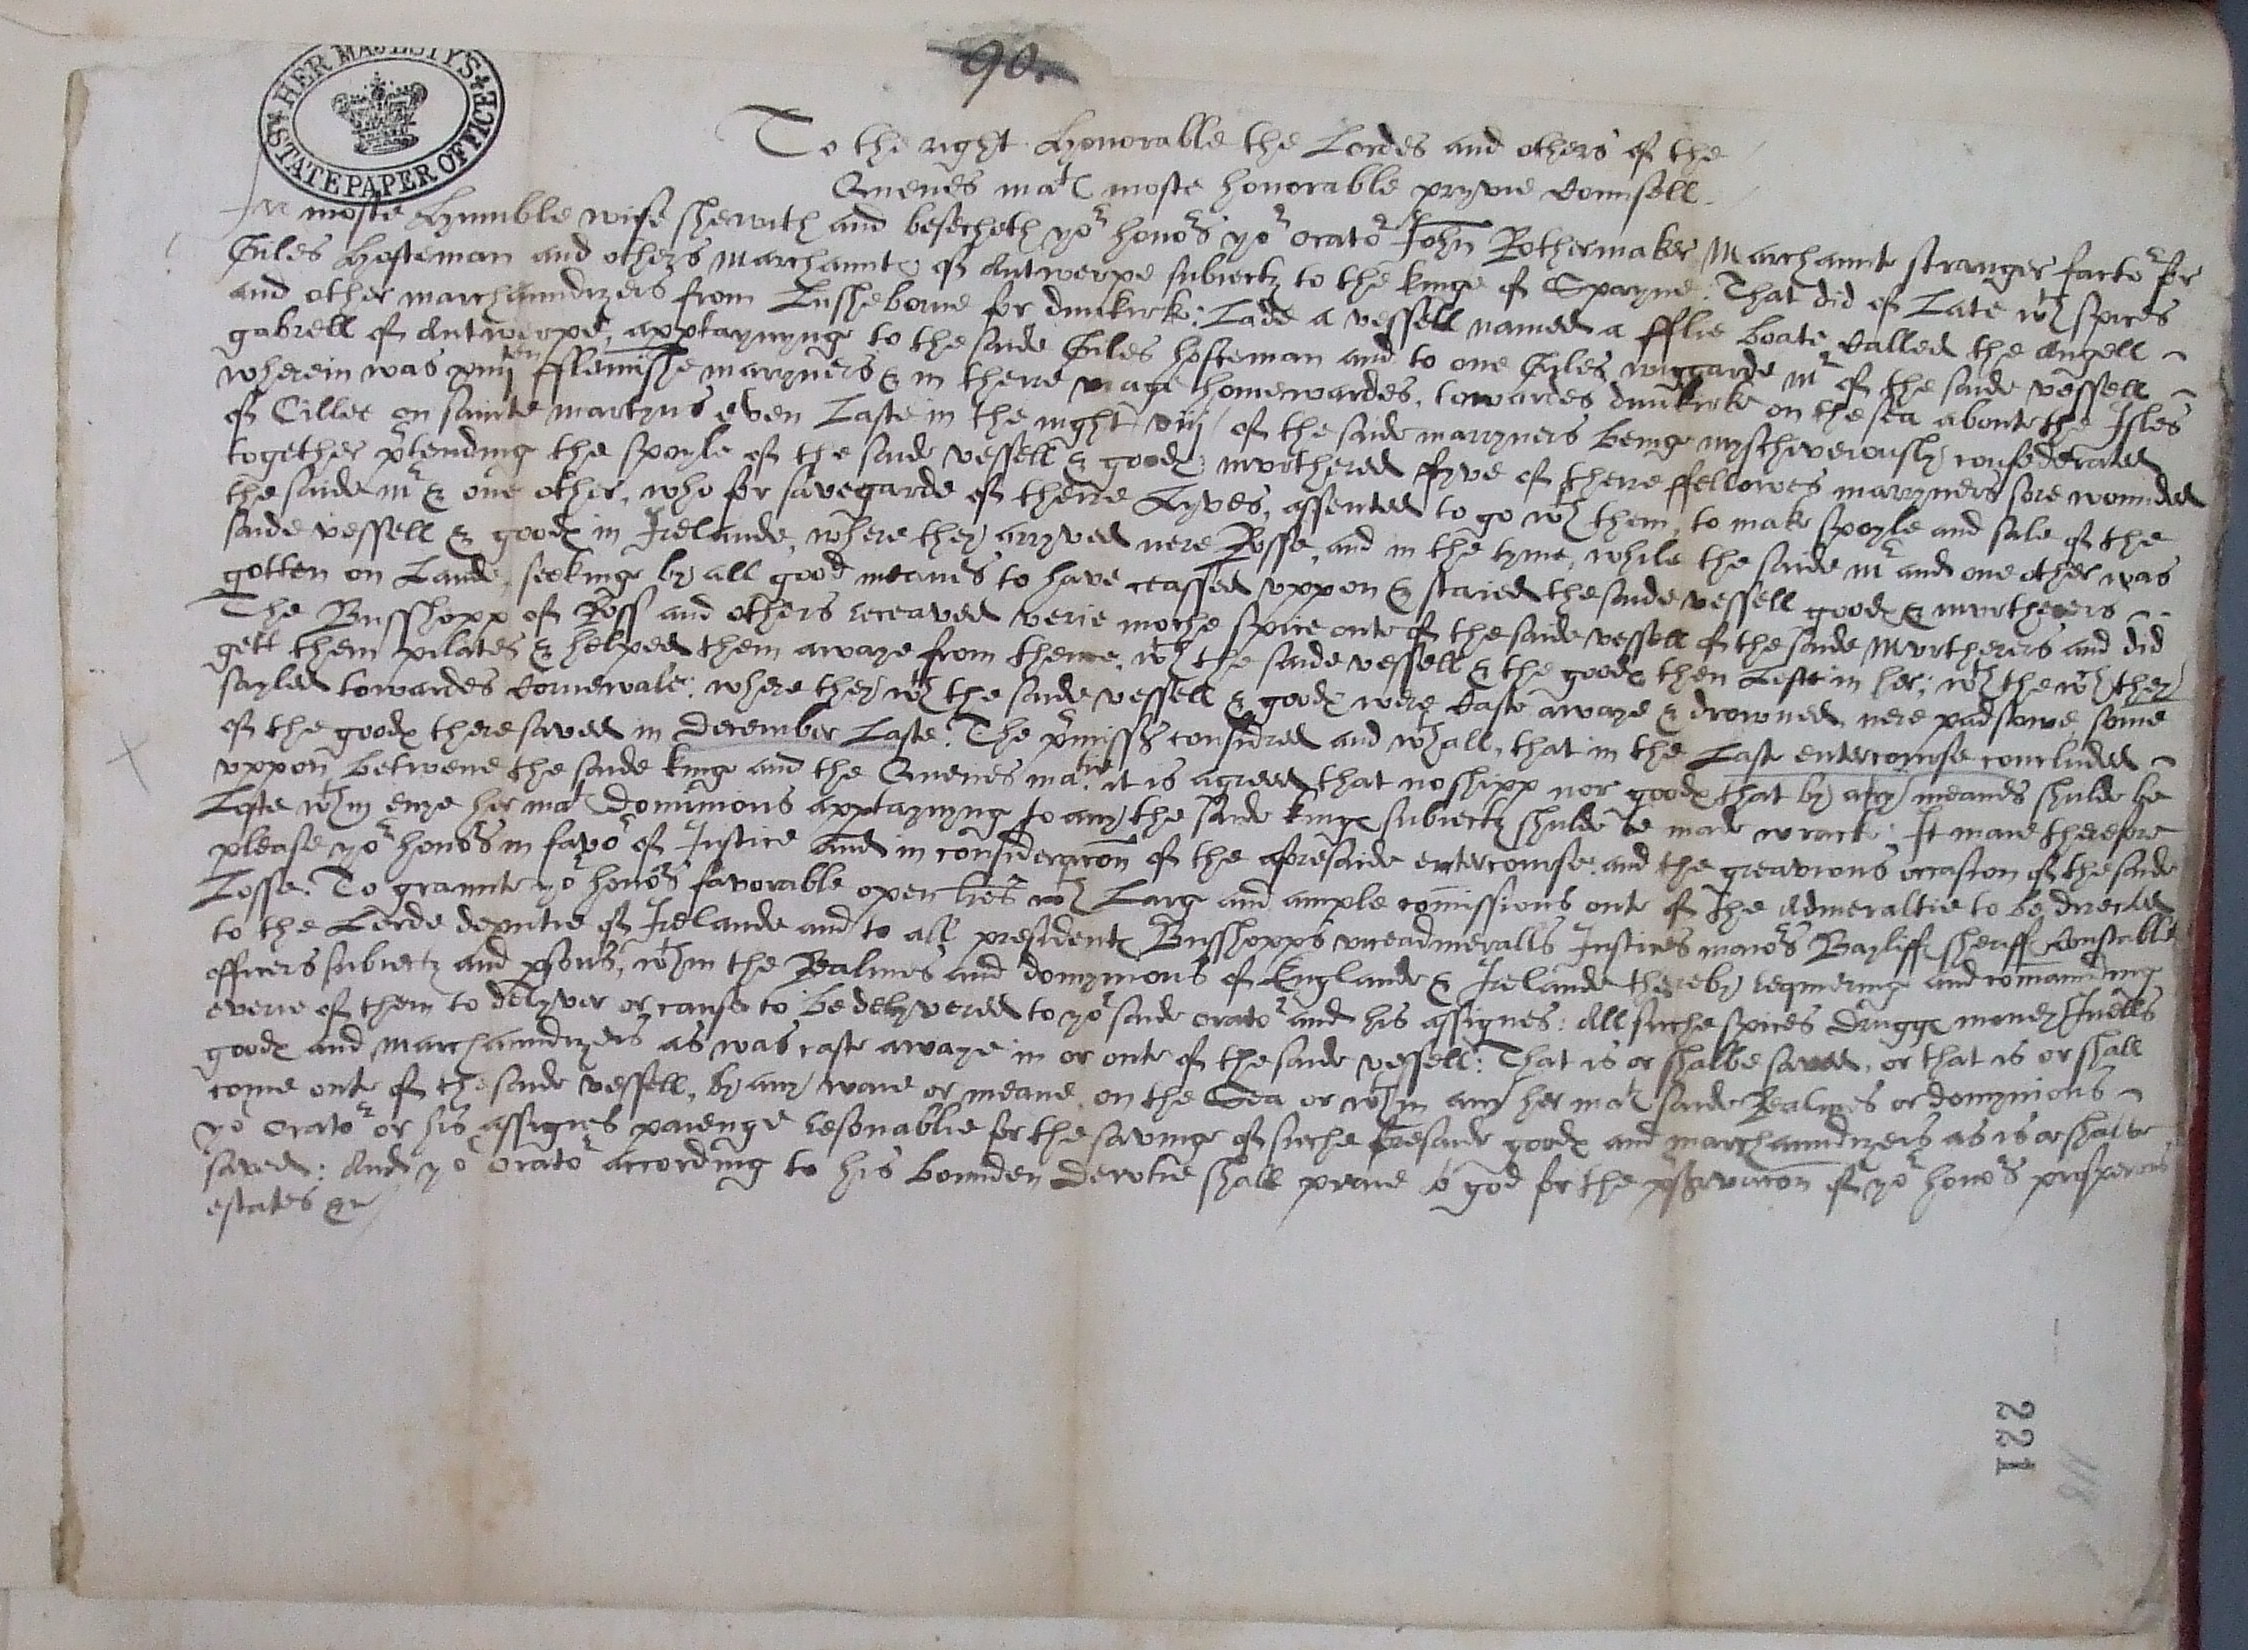 90.
HER MAJESTY'S STATE PAPER OFFICE
To the right Honorable the Lordes and others of the
Quenes ma^te moste honorable pryvie Counsell
In moste Humble wise shewith and besecheth yo^r hono^rs yo^r orato^r John Rothermaker Marchaunte stranger facto^r for
Giles Hosteman and others marchauntes of Antwerpe subiectes to the kinge of Spayne: That did of Late w^th spices
and other marchaundizes from Lusheborne for dunkirk: Lade a vessell named a fflie boate Called the Angell
gabrell of Antwerpe, appertaynynge to the saide Giles hosteman and to one Gyles wiggarde m^r of the saide vessell
wherein was xiiij^en fflemishe maryners & in there viage homewardes, towardes dunkirke on the sea aboute the Isles
of Cillee on sainte martyns even Laste in the night viij of the saide marryners beinge myscheveously confederated
together p^rtending the spoyle of the saide vessell & goodes murthered ffyve of there ffellowes marryners sore wounded
the saide m^r & one other, who for savegarde of there Lyves, assented to go w^th them, to make spoyle and sale of the
saide vessell & goodes in Irelande, where they arryved nere Rosse, and in the tyme, while the saide m^r and one other was
gotten on Lande, sekinge by all good meanes to have ceassed uppon & staied the saide vessell goodes & murtherers
The Busshopp of Ross and others receaved verie moche spice oute of the saide vessell of the saide Murtherers and did
gett them pilates & helped them awaye from thence, w^th the saide vessell & the goodes then Lefte in her; w^th the w^ch they
sayled towardes Cornewale: where they w^th the saide vessell & goodes were Caste awaye & drowned, nere padstowe, some
of the goodes there saved in December Laste. The p^rmisses consydred and w^thall, that in the Last entercourse concluded
uppon betwene the saide kinge and the Quenes ma^tie it is agreed that no shipp nor goodes that by any meanes shulde be
Lefte w^thin enye her ma^te Dominions appertaynyng to any the saide kinges subiectes shulde be made wracke; It maie therefore
please yo^r hono^rs in favo^r of Justice and in consideracon of the aforesaide entercourse: and the greavious occasion of the saide
Losse: To graunte yo^r hono^rs favorable open lres w^th Larg and ample comissions oute of the Admeraltie to be directed
to the Lorde deputie of Irelande and to all presidentes Busshopps viceadmeralls Justices maio^rs Bayliffes sheriffes Constables
officers subiectes and psons, w^thin the Realmes and domynions of Englande & Irelande thereby requieringe and comaunding
everie of them to delyver or cause to be delyvered to yo^r saide orato^r and his assignes: All suche spices Drugges money Juells
goodes and marchaundizes as was caste awaye in or oute of the saide vessell: That is or shalbe saved, or that is or shall
come oute of the saide vessell, by any waie or meane, on the Sea or w^thin any her ma^te saide Realmes or domynions
yo^r orato^r or his assignes paienge resonablie for the savinge of suche foresaide goodes and marchaundizes as is or shalbe
saved: And yo^r orato^r according to his bounden Dewtie shall praie to god for the p^rservacon of yo^r hono^rs prosperous
estates &c
221
118